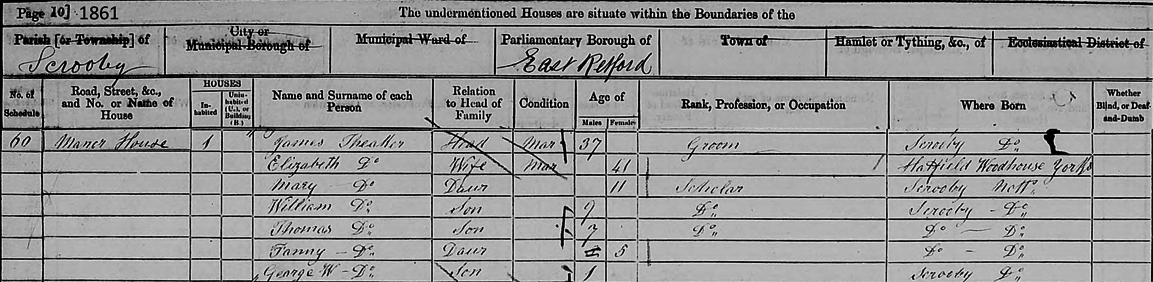 Page 10] 1861 The undermentioned Houses are situate within the Boundaries of the
Parish [or Township] of City or Municipal Borough of Municipal Ward of Parliamentary Borough of Town of Hamlet or Tything, &c., of Ecclesiastical District of
Scrooby East Retford
No. of Schedule Road, Street, &c., and No. or Name of House HOUSES Inhabited Uninhabited (U.), or Building (B.) Name and Surname of each Person Relation to Head of Family Condition Age of Males Females Rank, Profession, or Occupation Where Born Whether Blind, or Deaf-and-Dumb
60 Manor House 1 James Theaker Head Mar 37 Groom Scrooby Do
Elizabeth Do Wife Mar 41 Hatfield Woodhouse Yorks
Mary Do Daur 11 Scholar Scrooby Notts
William Do Son 9 Do Scrooby - Do
Thomas Do Son 7 Do Do - Do
Fanny - Do Daur 5 Do - Do
George W - Do Son 1 Scrooby Do